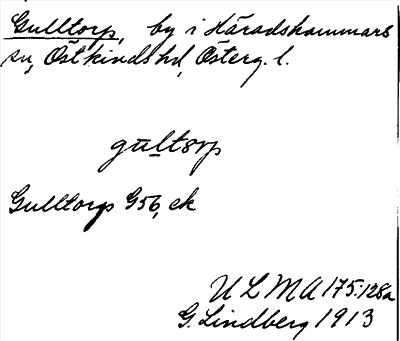 Gulltorp, by i Häradshammars
sn, Östkinds hd, Österg. l.
gūltorp
Gulltorps G56, ek
U L M A 175:128a
G. Lindberg 1913